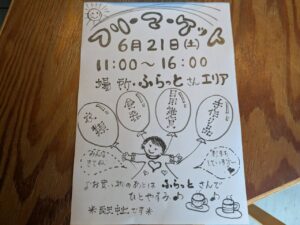 フリーマーケット
6月21日(土)
11:00〜16:00
場所・ふらっとさんエリア
衣類
食器
日用雑貨
手作り品
みんな
きてね
お待ち
しています
お買い物のあとは ふらっとさんで
ひとやすみ♪